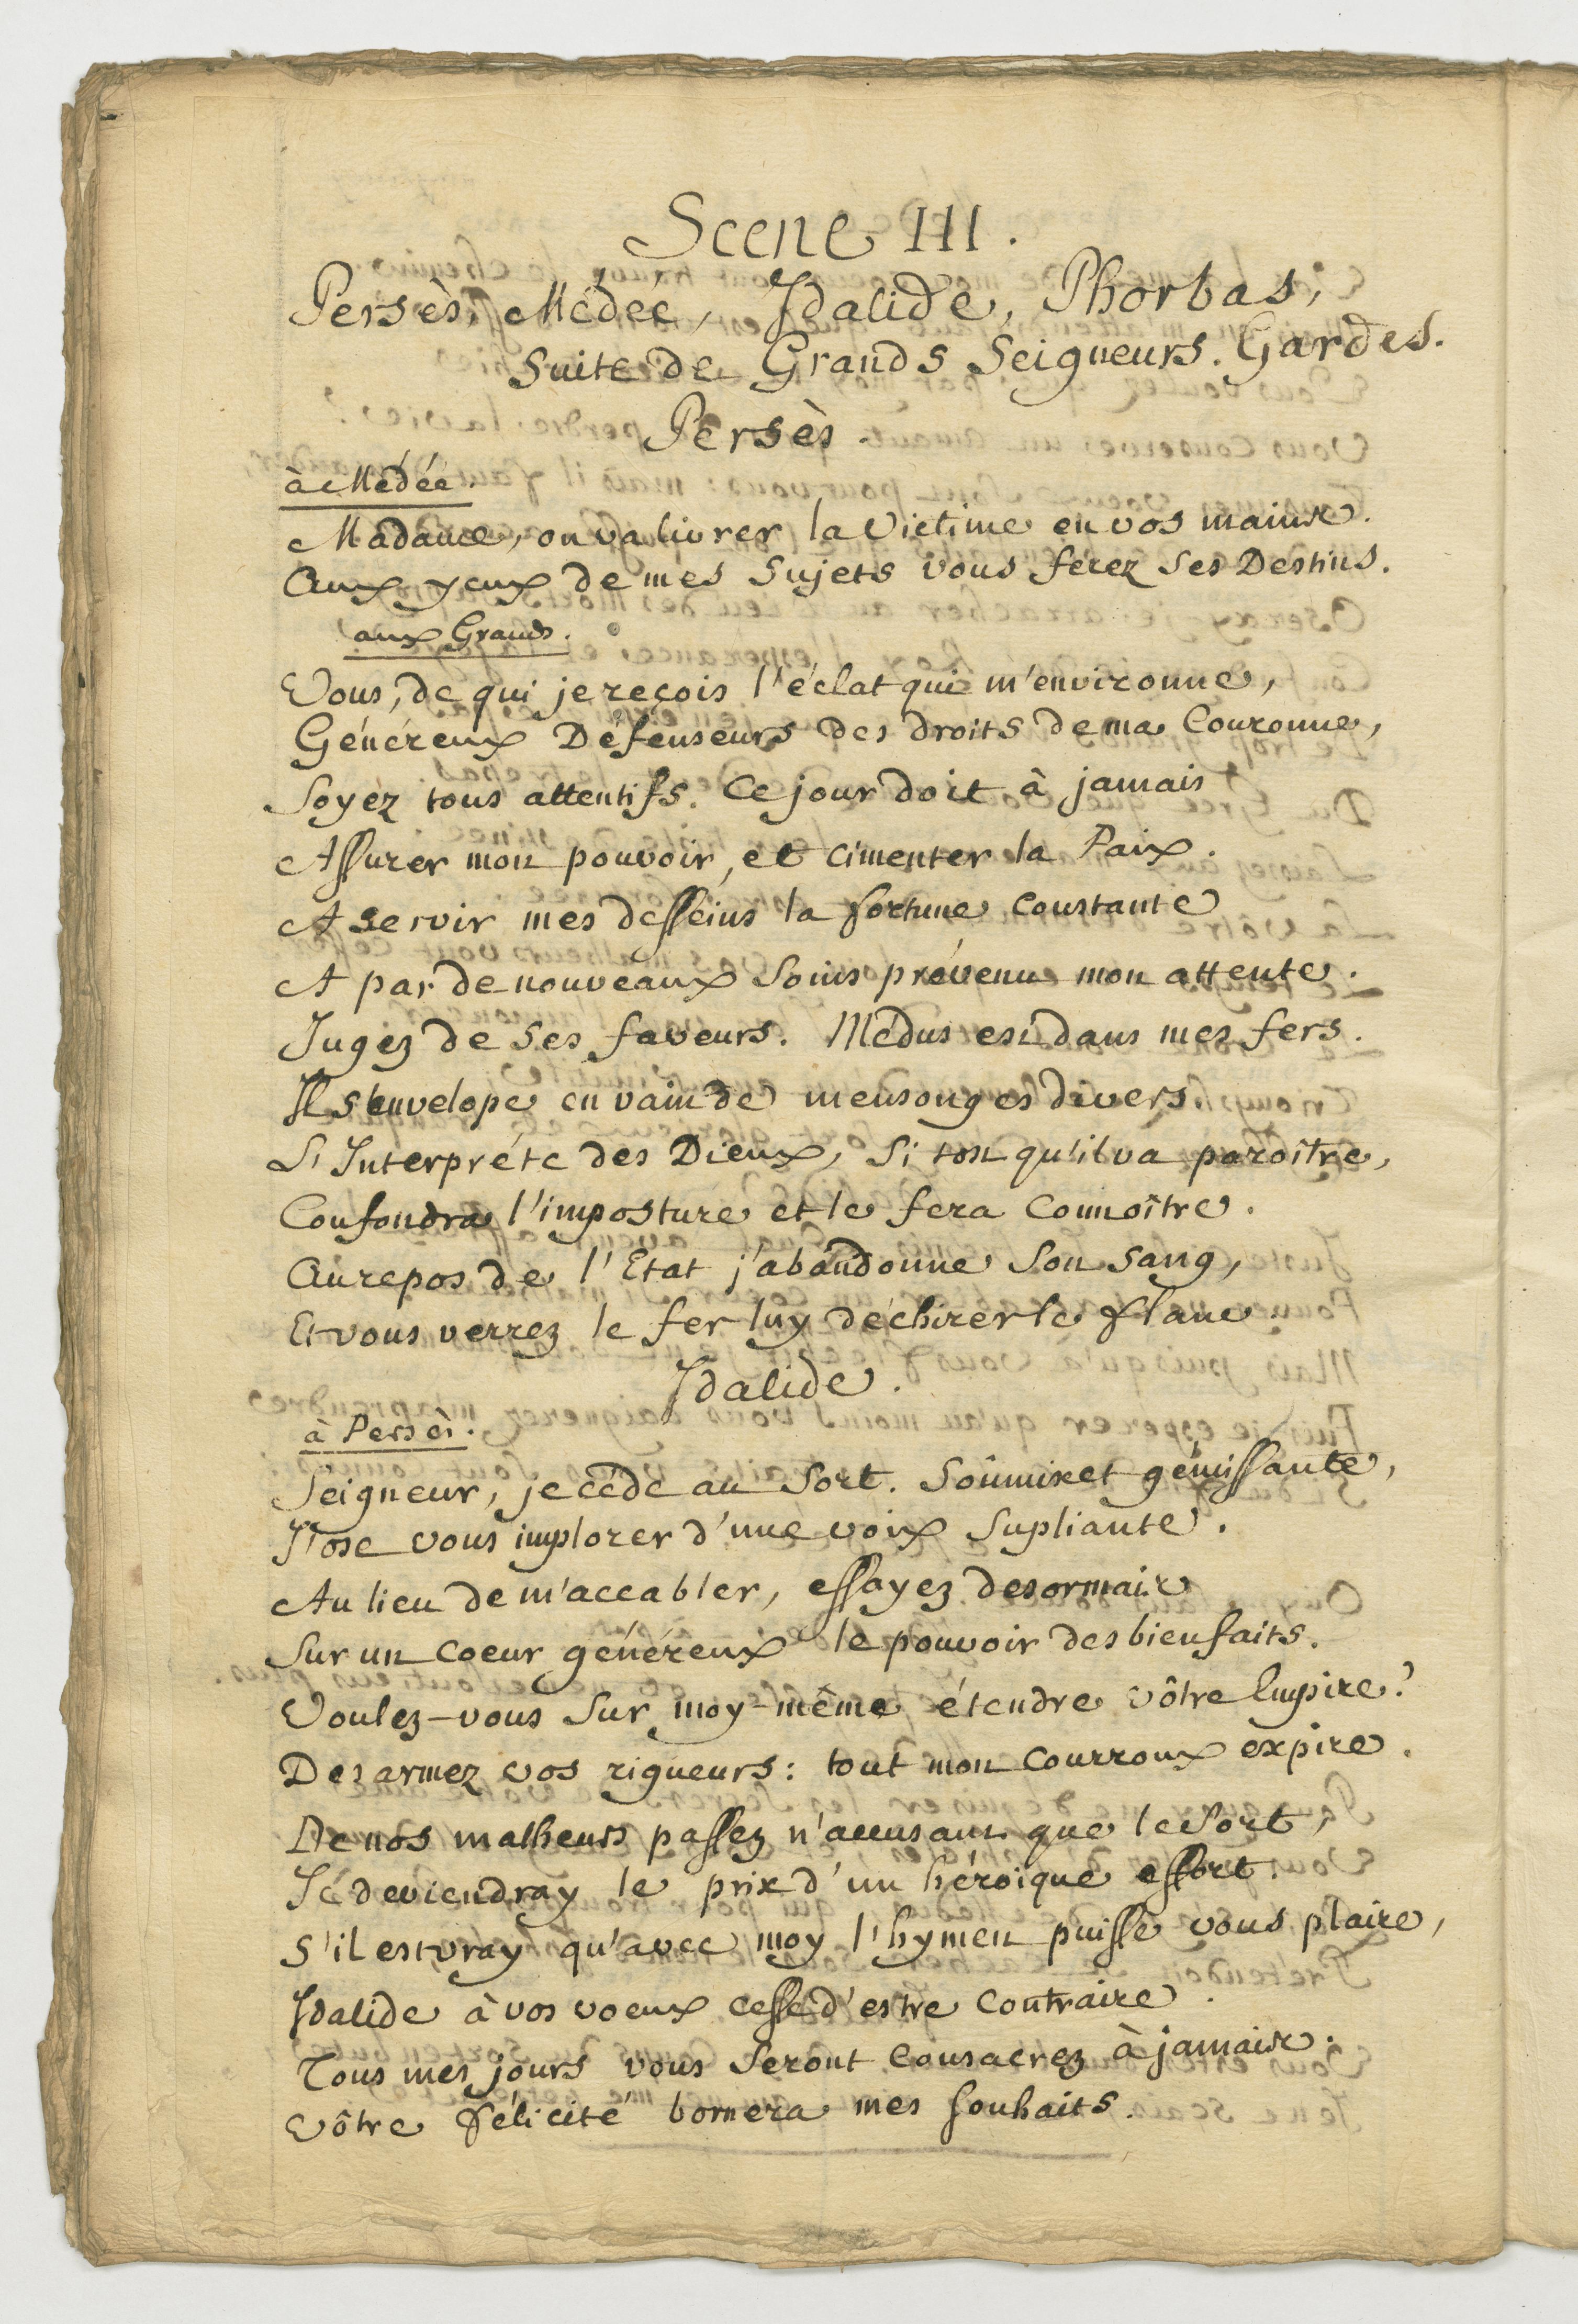 Scene III.
Persès, Médée, Idalide, Phorbas,
Suite de Grands Seigneurs. Gardes.
Persès.
à Médée.
Madame, on va livrer la Victime en vos mains.
Aux yeux de mes Sujets vous ferez ses Destins.
aux Grands.
Vous, de qui je reçois l'éclat qui m'environne,
Généreux Défenseurs des droits de ma Couronne,
Soyez tous attentifs. Ce jour doit à jamais
Assurer mon pouvoir, et cimenter la Paix.
A servir mes desseins la fortune constante
A par de nouveaux Soins prévenu mon attente.
Jugez de ses faveurs. Médus est dans mes fers.
Il s'envelope en vain de mensonges divers.
L'Interpréte des Dieux, Si tost qu'il va paroître,
Confondra l'imposture et le fera Connoître.
Au repos de l'Etat j'abandonne Son Sang,
Et vous verrez le fer luy déchirer le flanc.
Idalide.
à Persès.
Seigneur, je céde au Sort. Soûmise et gémissante,
J'ose vous implorer d'une voix Supliante.
Au lieu de m'accabler, essayez desormais
Sur un Coeur généreux le pouvoir des bienfaits.
Voulez-vous Sur moy-même étendre vôtre Empire?
Desarmez vos rigueurs: tout mon Courroux expire.
De nos malheurs passez n'accusant que le Sort,
Je deviendray le prix d'un héroique effort.
S'il est vray qu'avec moy l'hymen puisse vous plaire,
Idalide à vos voeux cesse d'estre Contraire.
Tous mes jours vous Seront Consacrez à jamais.
Vôtre félicité bornera mes Souhaits.